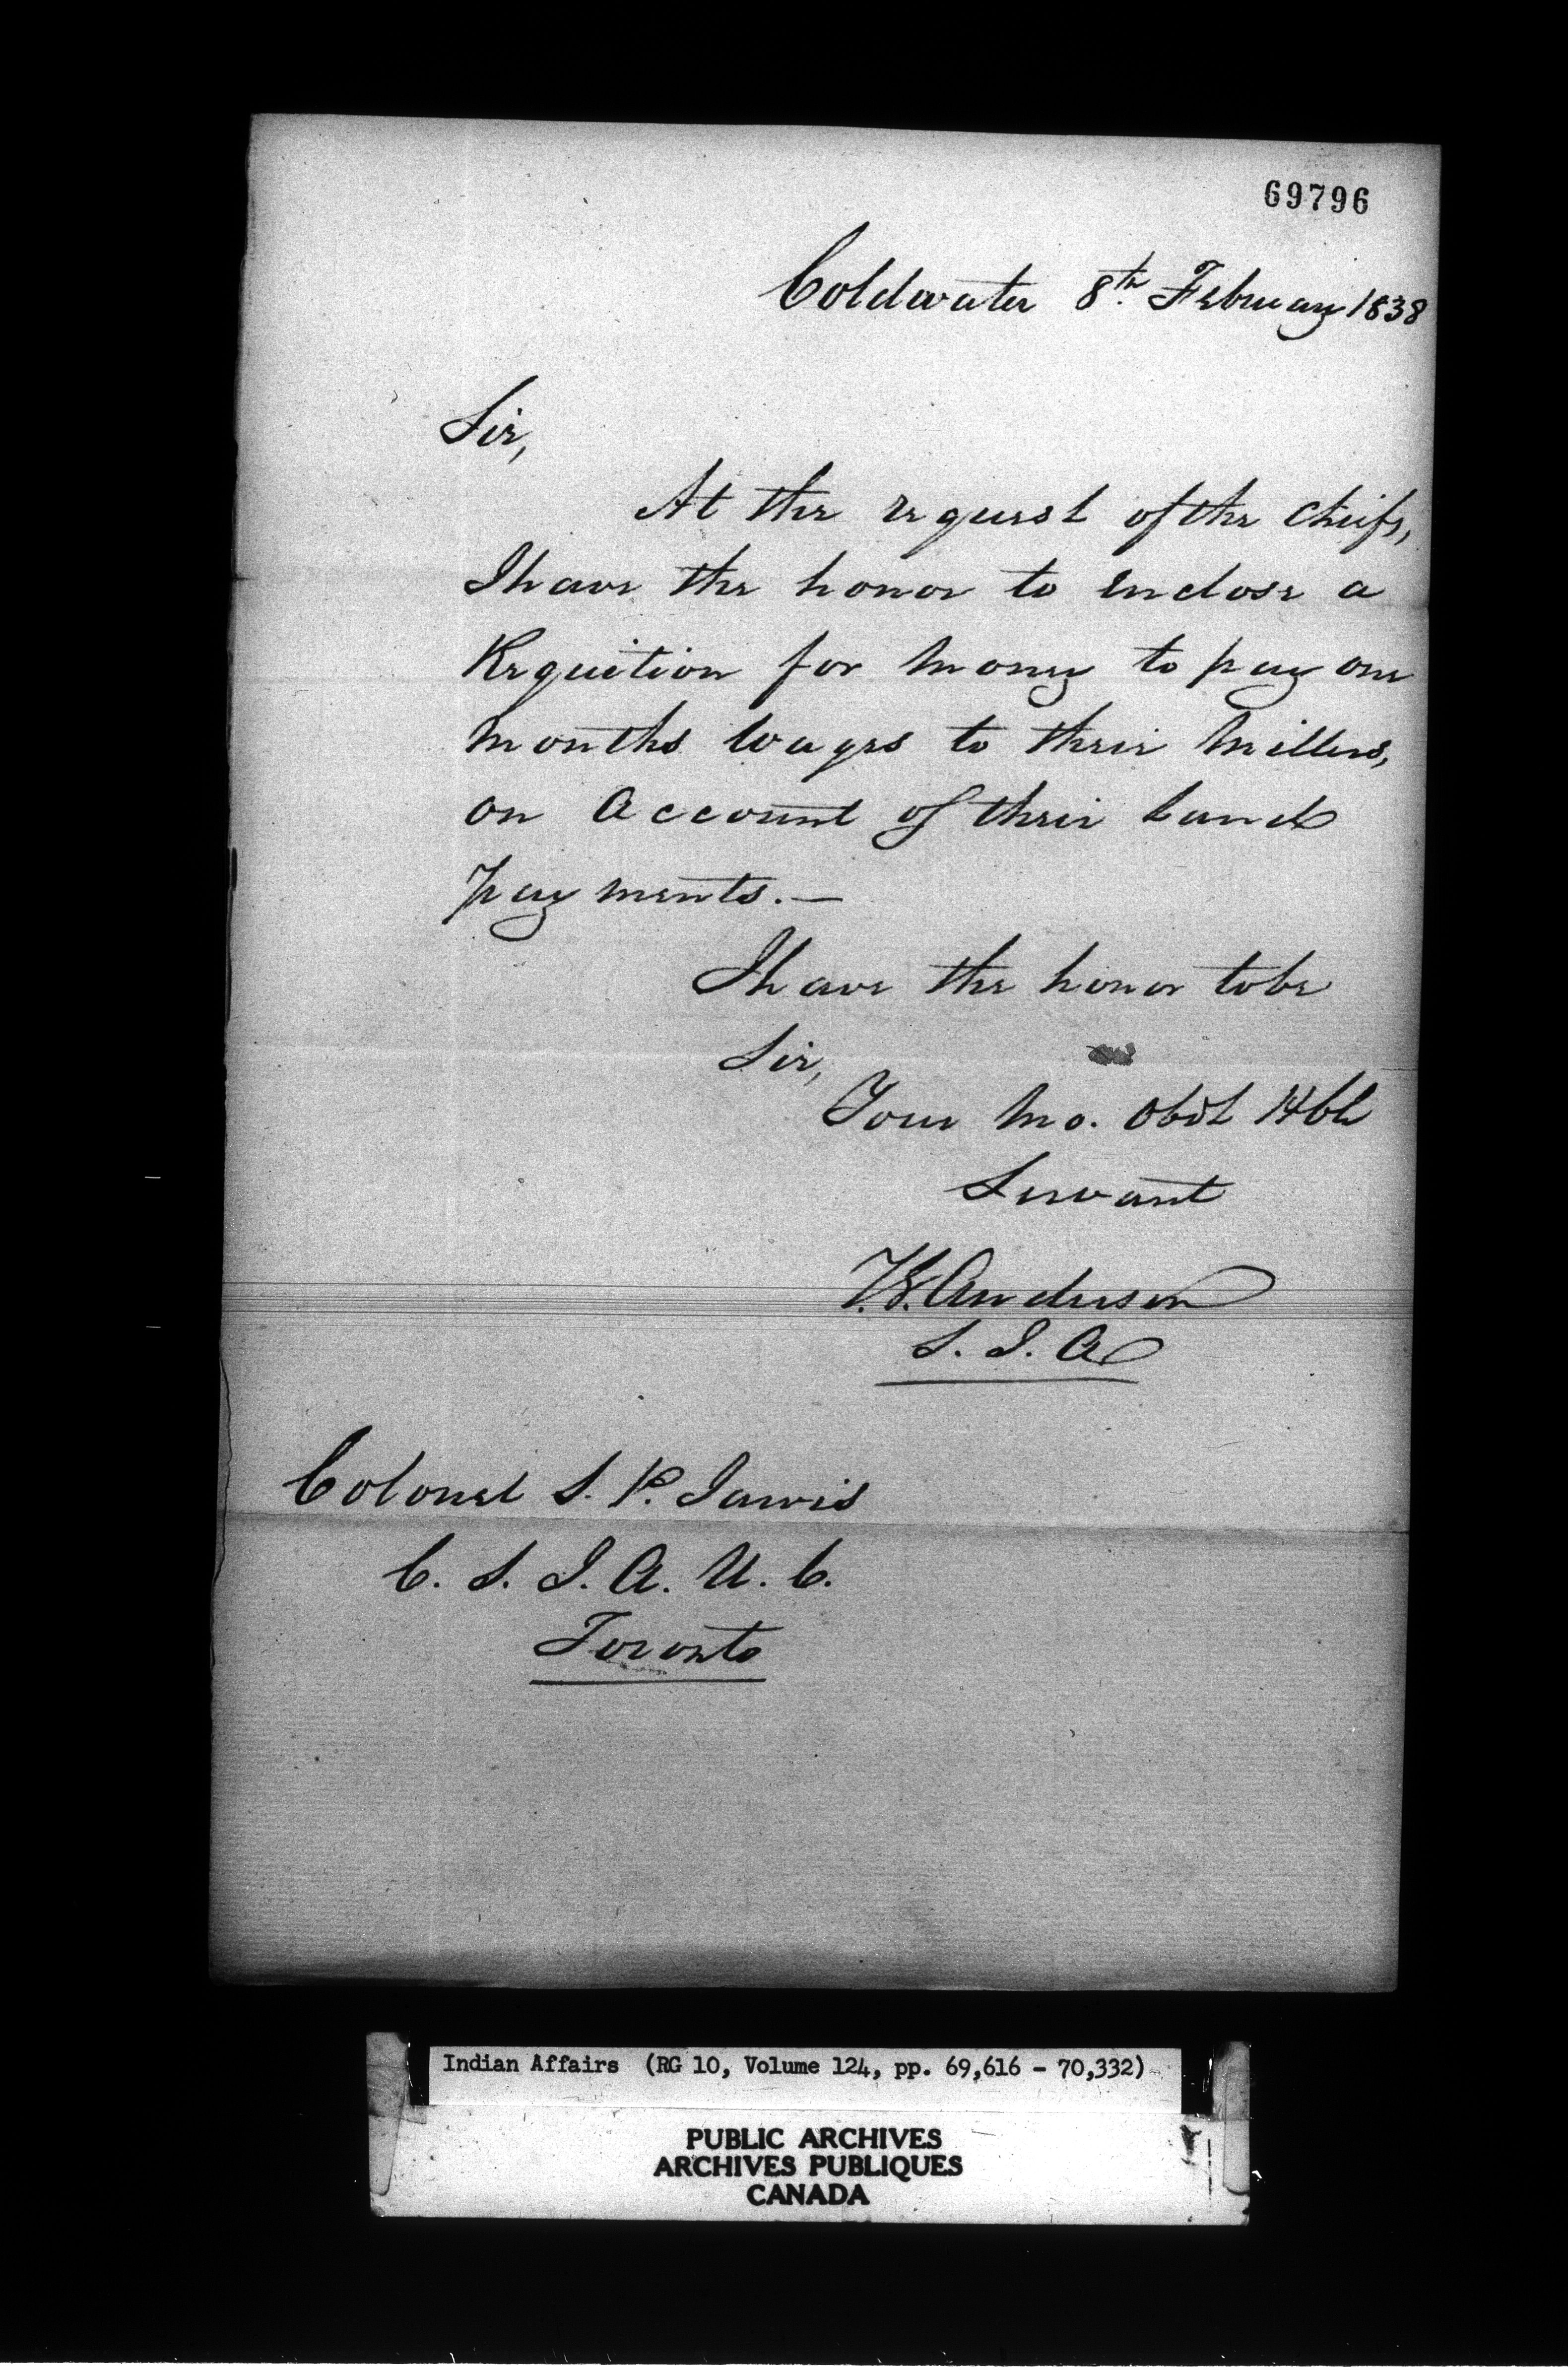 69796
Coldwater 8th. February 1838
Sir,
At the request of the Chiefs,
I have the honor to enclose a
Requition for money to pay one
months Wages to their Millers,
on Account of their Land
payments. —
I have the honor to be
Sir,
Your Mo. Obdt Hble
Servant
T.G. Anderson
S. I. A
Colonel S. P. Jarvis
C. S. I. A. U. C.
Toronto
Indian Affairs (RG 10, Volume 124, pp. 69,616 - 70,332)
PUBLIC ARCHIVES
ARCHIVES PUBLIQUES
CANADA